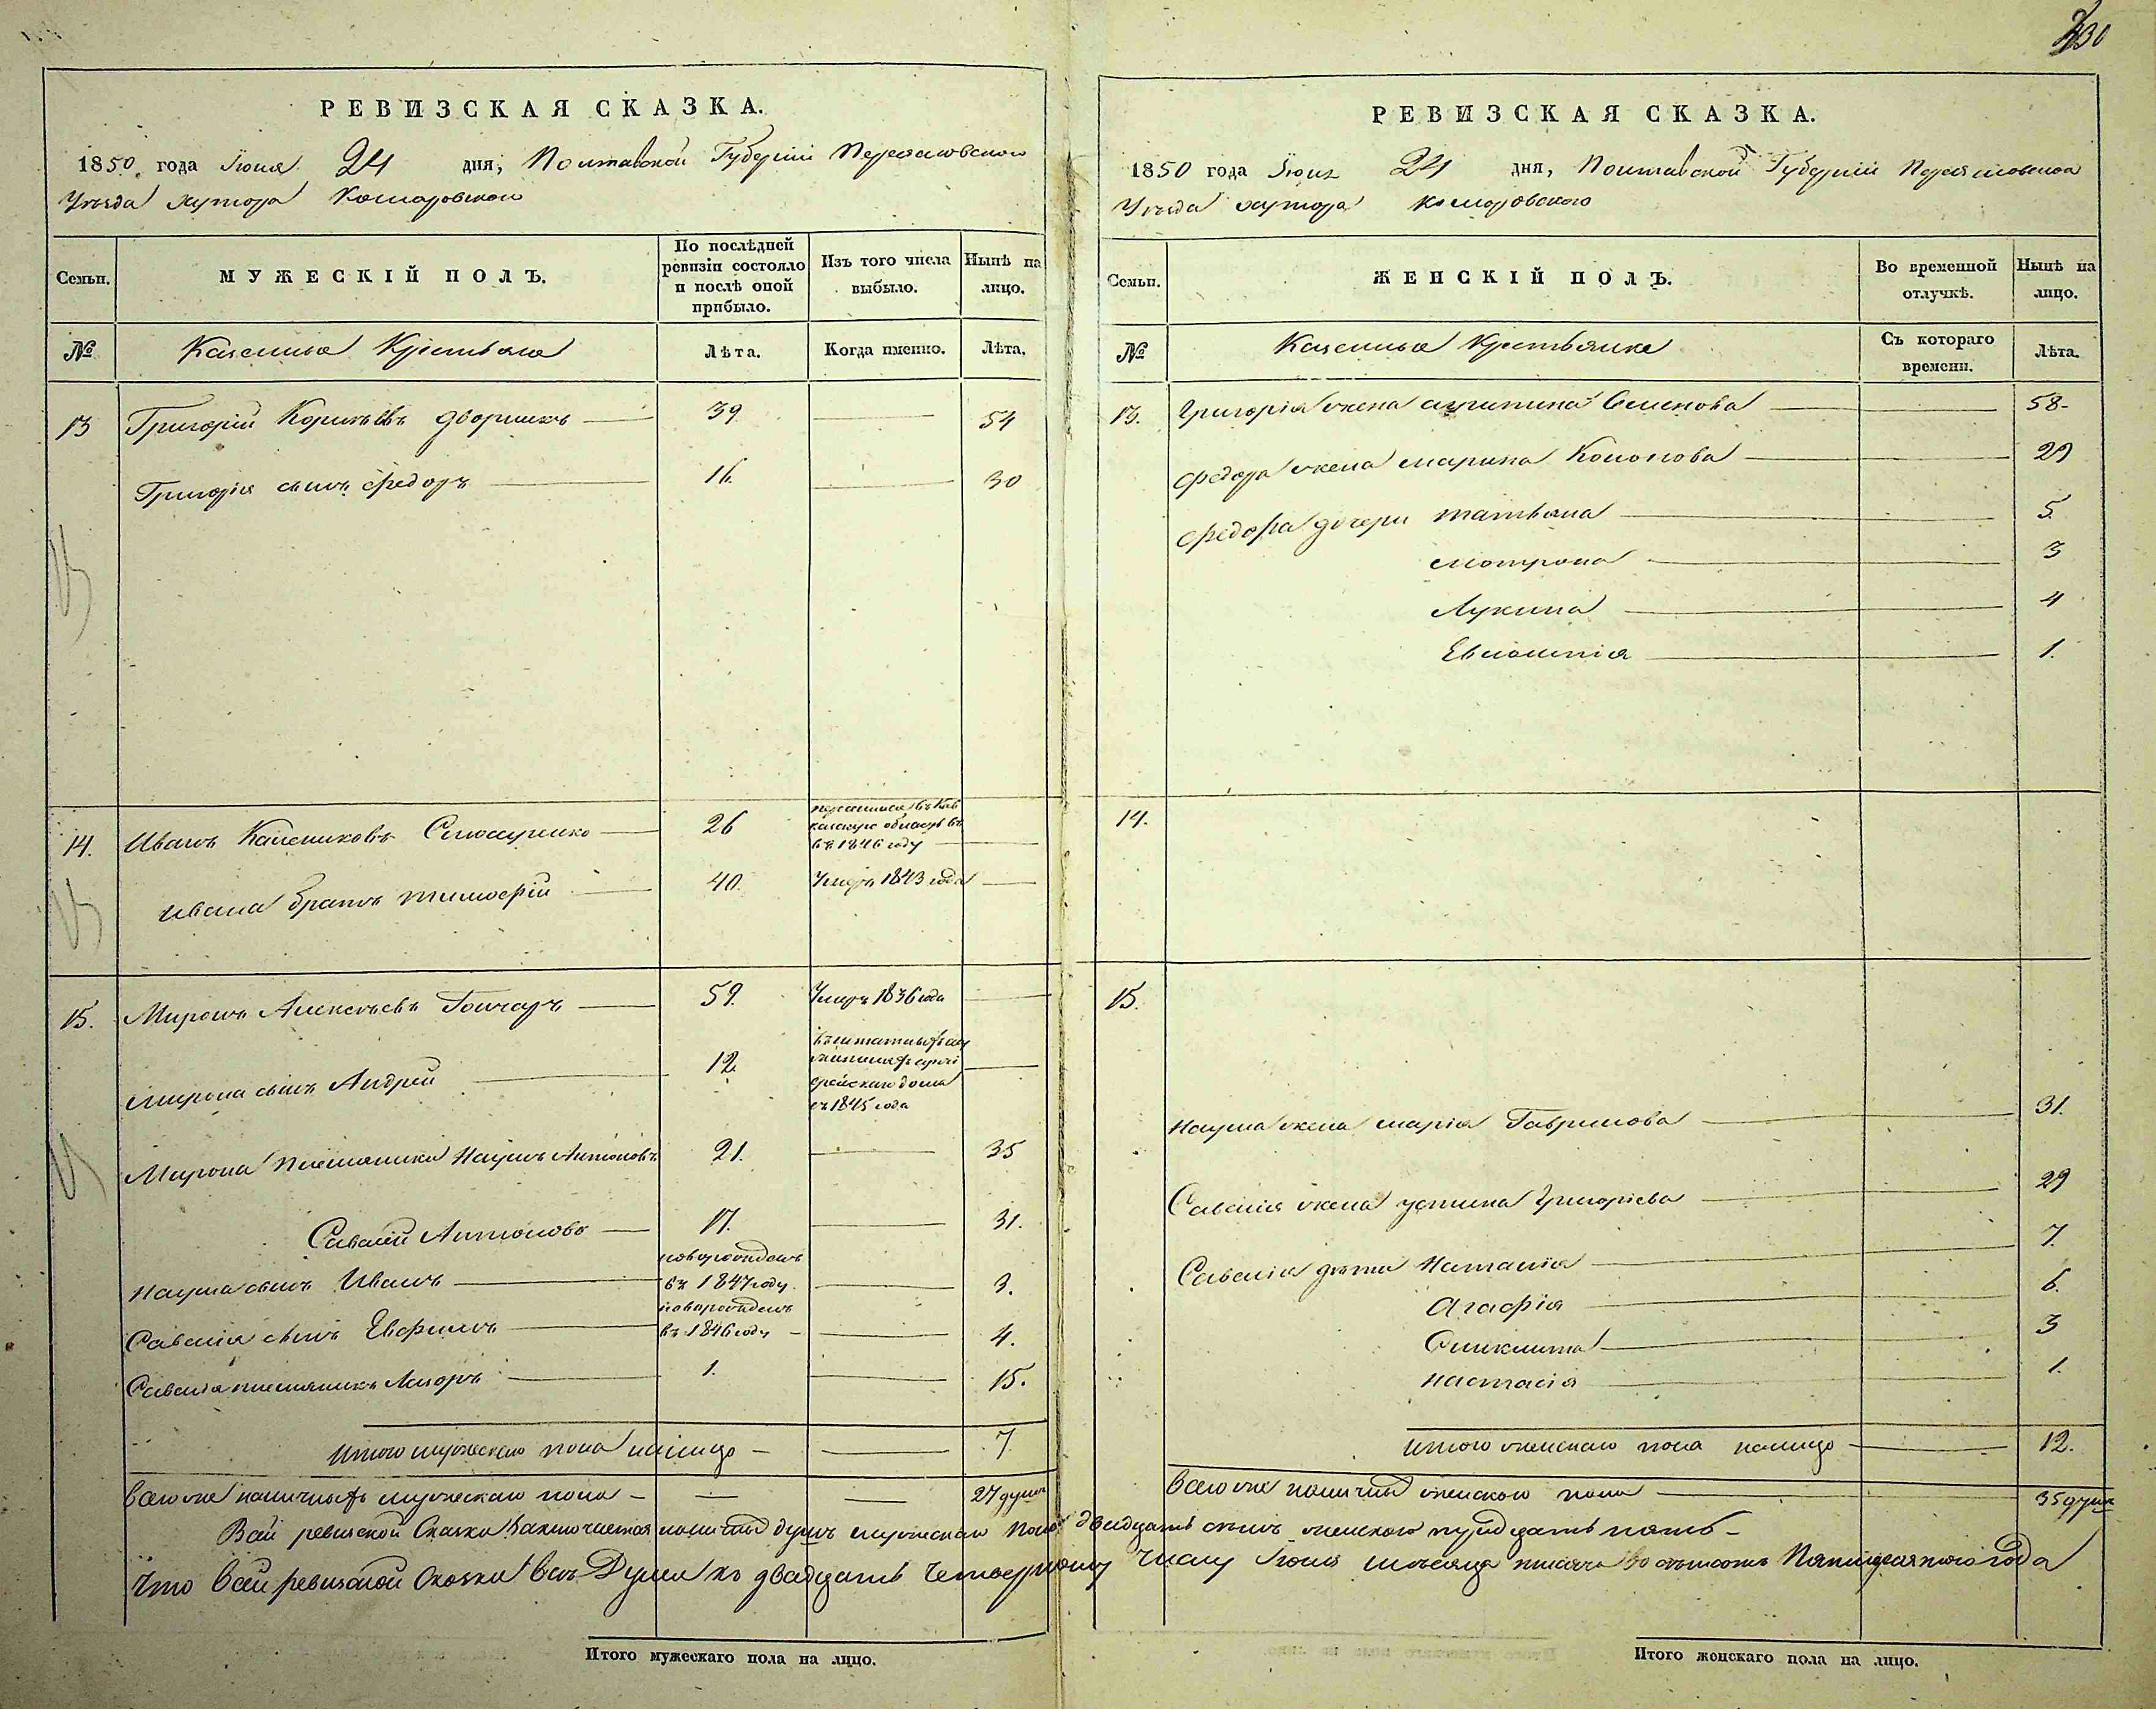 230
РЕВИЗСКАЯ СКАЗКА.
1850 года Июня 24 дня, Полтавской Губерніи Переяславского
Уезда хутора Комаровского
Семьи.
МУЖЕСКІЙ ПОЛЪ.
По послѣдней ревизіи состояло и послѣ оной прибыло.
Изъ того числа выбыло.
Нынѣ на лицо.
№
Казенные Крестьяне
Лѣта.
Когда именно.
Лѣта.
13 Григорій Корнѣевъ Дворникъ 39 54
Григорія сынъ Федоръ 16. 30
14. Иванъ Калениковъ 26 переселился въ Кавказскую область въ 1846 году
Ивана братъ Тимофій 40. Умеръ 1843 года
15. Миронъ Алексѣевъ Гончаръ 59. Умеръ 1836 года
Мирона сынъ Андрей 12. въ штатные служители архіерейского дома съ 1845 года
Мирона племянники Наумъ Антоновъ 21. 35
Саватій Антоновъ 17. 31.
Наума сынъ Иванъ новорожденъ въ 1847 году 3.
Саватія сынъ Евфимъ новорожденъ въ 1846 году 4.
Саватія племянникъ 1. 15.
Итого мужескаго пола налицо 7
Всего же наличныхъ мужескаго пола 27 душъ
РЕВИЗСКАЯ СКАЗКА.
1850 года Июня 24 дня, Полтавской Губерніи Переяславского
Уезда хутора Комаровского
Семьи.
ЖЕНСКІЙ ПОЛЪ.
Во временной отлучкѣ.
Нынѣ на лицо.
№
Казенные Крестьянки
Съ котораго времени.
Лѣта.
13. Григорія жена Агрипина Семенова 58
Федора жена Марина Кононова 29
Федора дочери Татьяна 5
Мотрона 3
Лукина 4
1.
14.
15.
Наума жена Марія Гаврилова 31.
Саватія жена Устина Григоріева 29
Саватія дѣти Наталія 7.
Агафія 6.
Синклита 3
Настасія 1.
Итого женскаго пола налицо 12.
Всего же наличныхъ женского пола 35 душъ
В сей ревиской Сказки Заключается наличныхъ душъ мужескаго пола двадцать семь женскаго тридцать пять
Что в сей ревизской Сказки всѣ Души къ двадцать Четвертому Числу Іюня мѣсяца тысяча во семьсотъ Пятидесятого года
Итого мужескаго пола на лицо.
Итого женскаго пола на лицо.